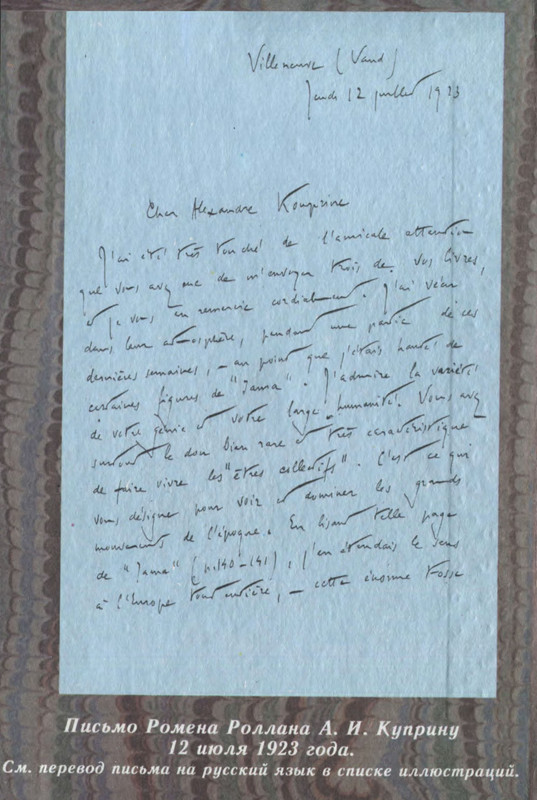 Villeneuve (Vaud)
Jeudi 12 juillet 1923
Cher Alexandre Kouprine
J'ai été très touché de l'amicale attention
que vous avez eue de m'envoyer trois de vos livres,
et je vous en remercie cordialement. J'ai vécu
dans leur atmosphère, pendant une partie de ces
dernières semaines, – au point que j'étais hanté de
certaines figures de "Jama". J'admire la variété
de votre génie et votre large humanité. Vous avez
surtout le don bien rare et très caractéristique
de faire vivre les "êtres collectifs". C'est ce qui
vous désigne pour voir et dominer les grands
mouvements de l'époque. En lisant telle page
de "Jama" (140-141), j'en étendais le sens
à l'Europe tout entière, – cette énorme fosse
Письмо Ромена Роллана А. И. Куприну
12 июля 1923 года.
См. перевод письма на русский язык в списке иллюстраций.